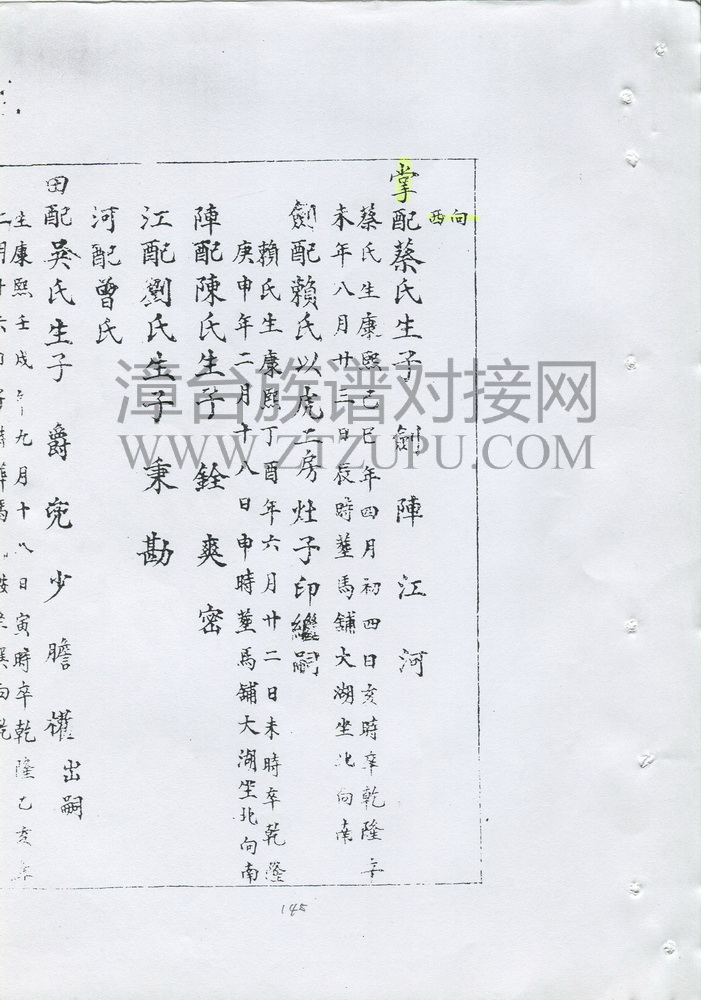 西向
掌配蔡氏生子 劍 陣 江 河
蔡氏生康熙己巳年四月初四日亥時卒乾隆辛
未年八月廿三日辰時塟馬鋪大湖坐北向南
劍配賴氏以虎二房灶子印繼嗣
賴氏生康熙丁酉年六月廿二日未時卒乾隆
庚申年二月十八日申時塟馬鋪大湖坐北向南
陣配陳氏生子 銓 爽 密
江配劉氏生子 秉 勘
河配曾氏
田配吳氏生子 爵 兠 少 膽 權出嗣
生康熙壬戌年九月十八日寅時卒乾隆乙亥年
二月廿六日
145
漳台族谱对接网
WWW.ZTZUPU.COM